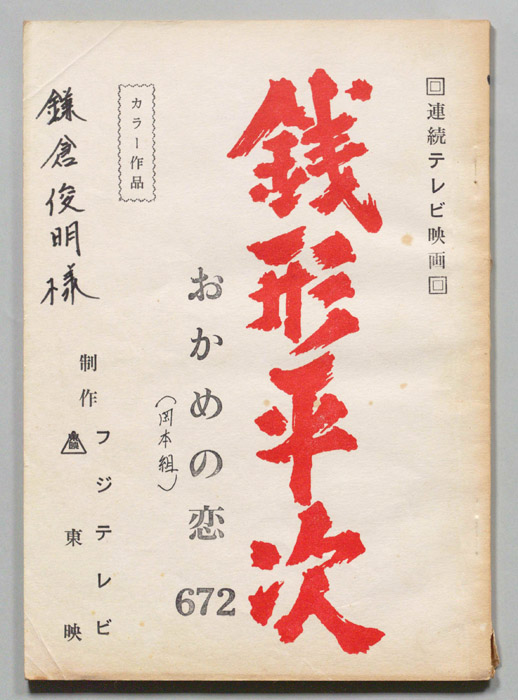 回連続テレビ映画回
銭形平次
おかめの恋 672
(岡本組)
カラー作品
制作 フジテレビ
東映
鎌倉俊明様